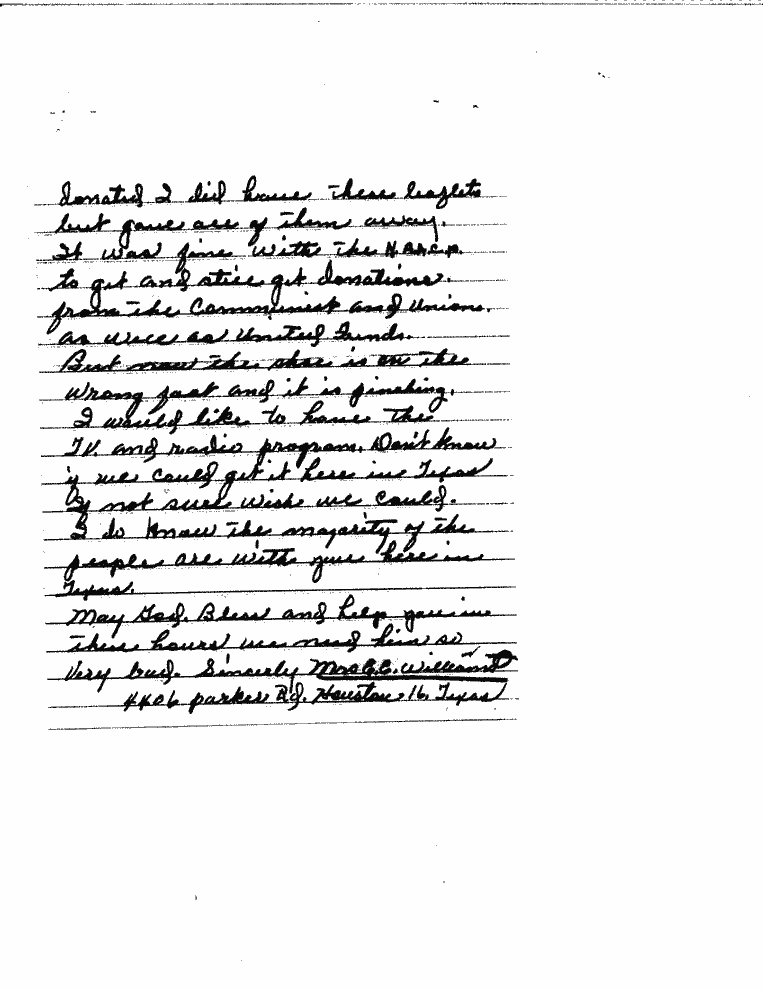 donated I did have these leaflets
but gave all of them away.
It was fine with the N.A.A.C.P.
to get and still get donations.
from the Communist and Unions.
as well as United Funds.
But now the shoe is on the
wrong foot and it is pinching.
I would like to have the
TV. and radio program. Don't know
if we could get it here in Texas
If not sure wish we could.
I do know the majority of the
people are with you here in
Texas.
May God. Bless and help you in
these hours we need him so
very bad. Sincerly Mrs C.C. Williams
4406 parker Rd. Houston 16. Texas